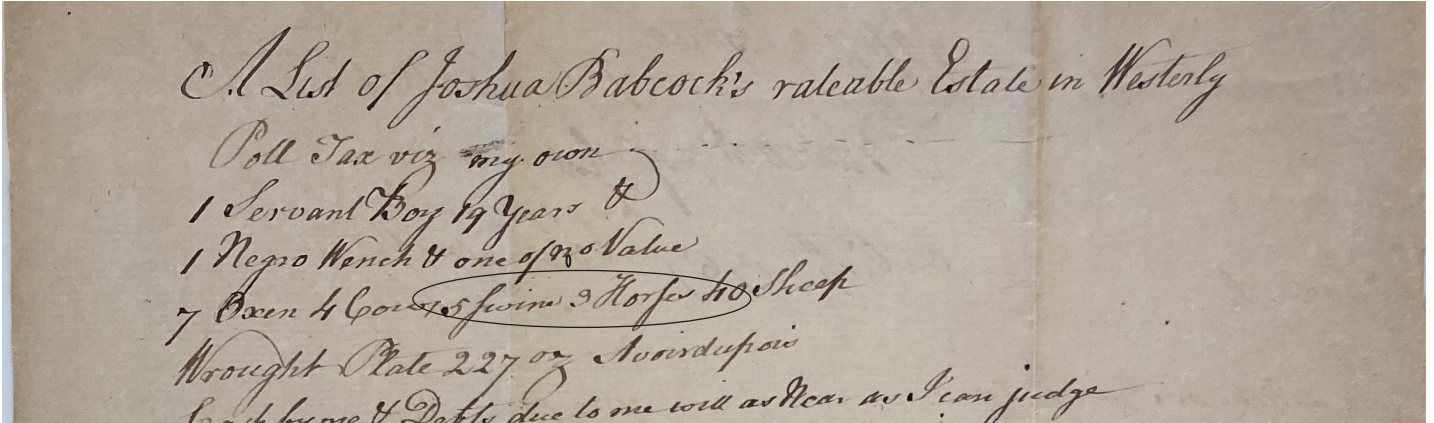 A List of Joshua Babcock's rateable Estate in Westerly
Poll Tax viz my own
1 Servant Boy 19 Years &
1 Negro Wench & one of no Value
7 Oxen 4 Cows 5 swine 3 Horses 40 Sheep
Wrought Plate 227 oz Avoirdupois
Cash by me & Debts due to me will as Near as I can judge